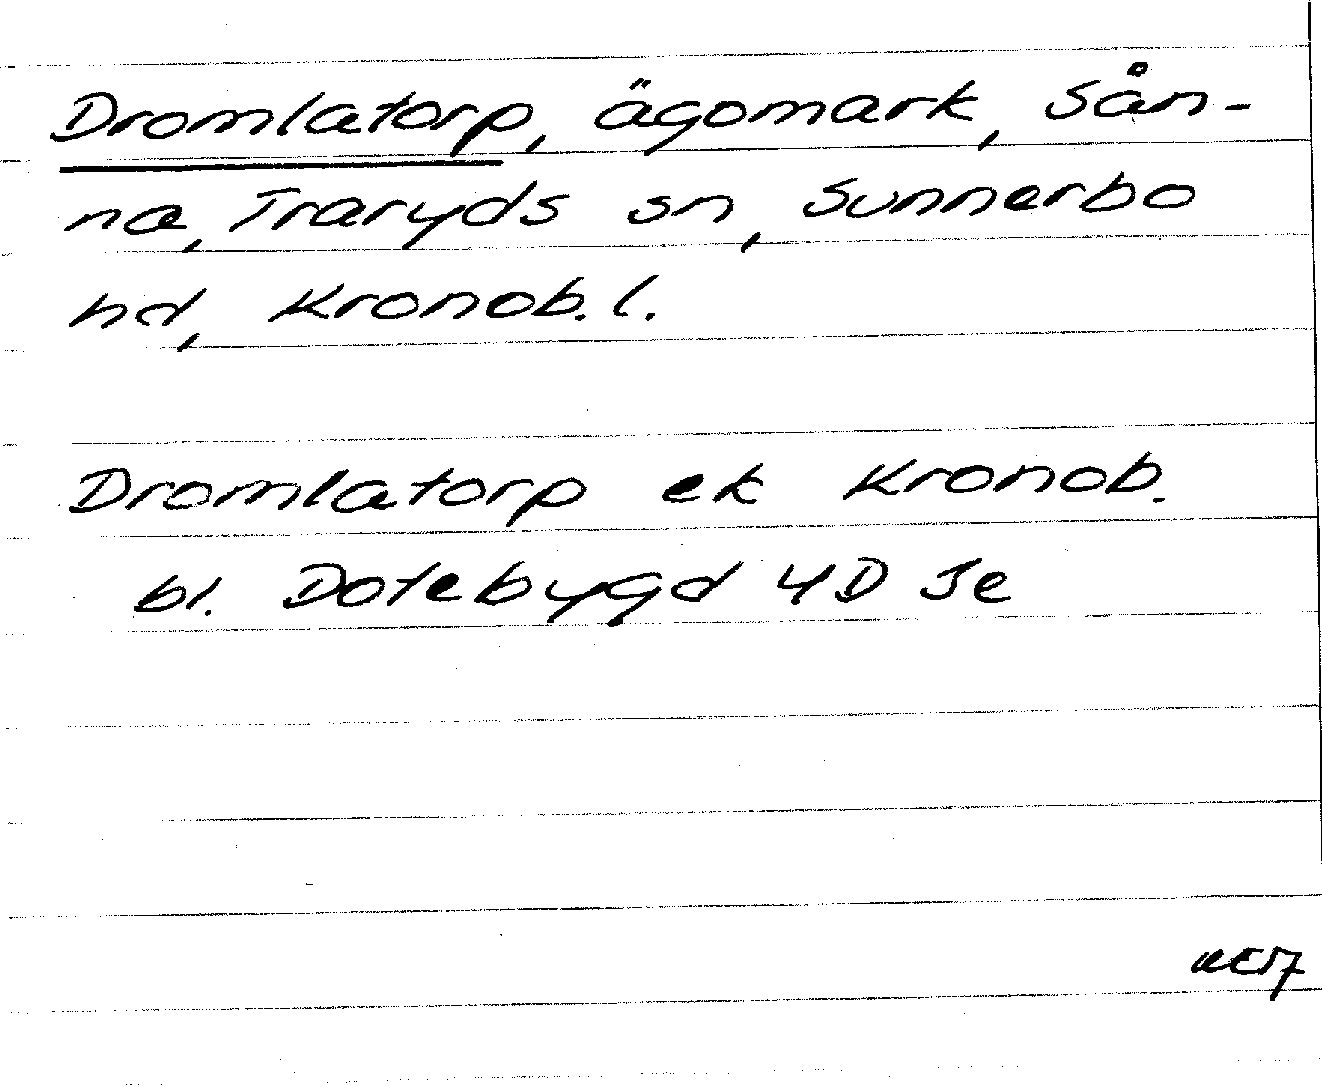 Dromlatorp, ägomark, Sån-
na, Traryds sn, Sunnerbo
hd, Kronob. l.
Dromlatorp ek Kronob.
bl. Dotebygd 4D Je